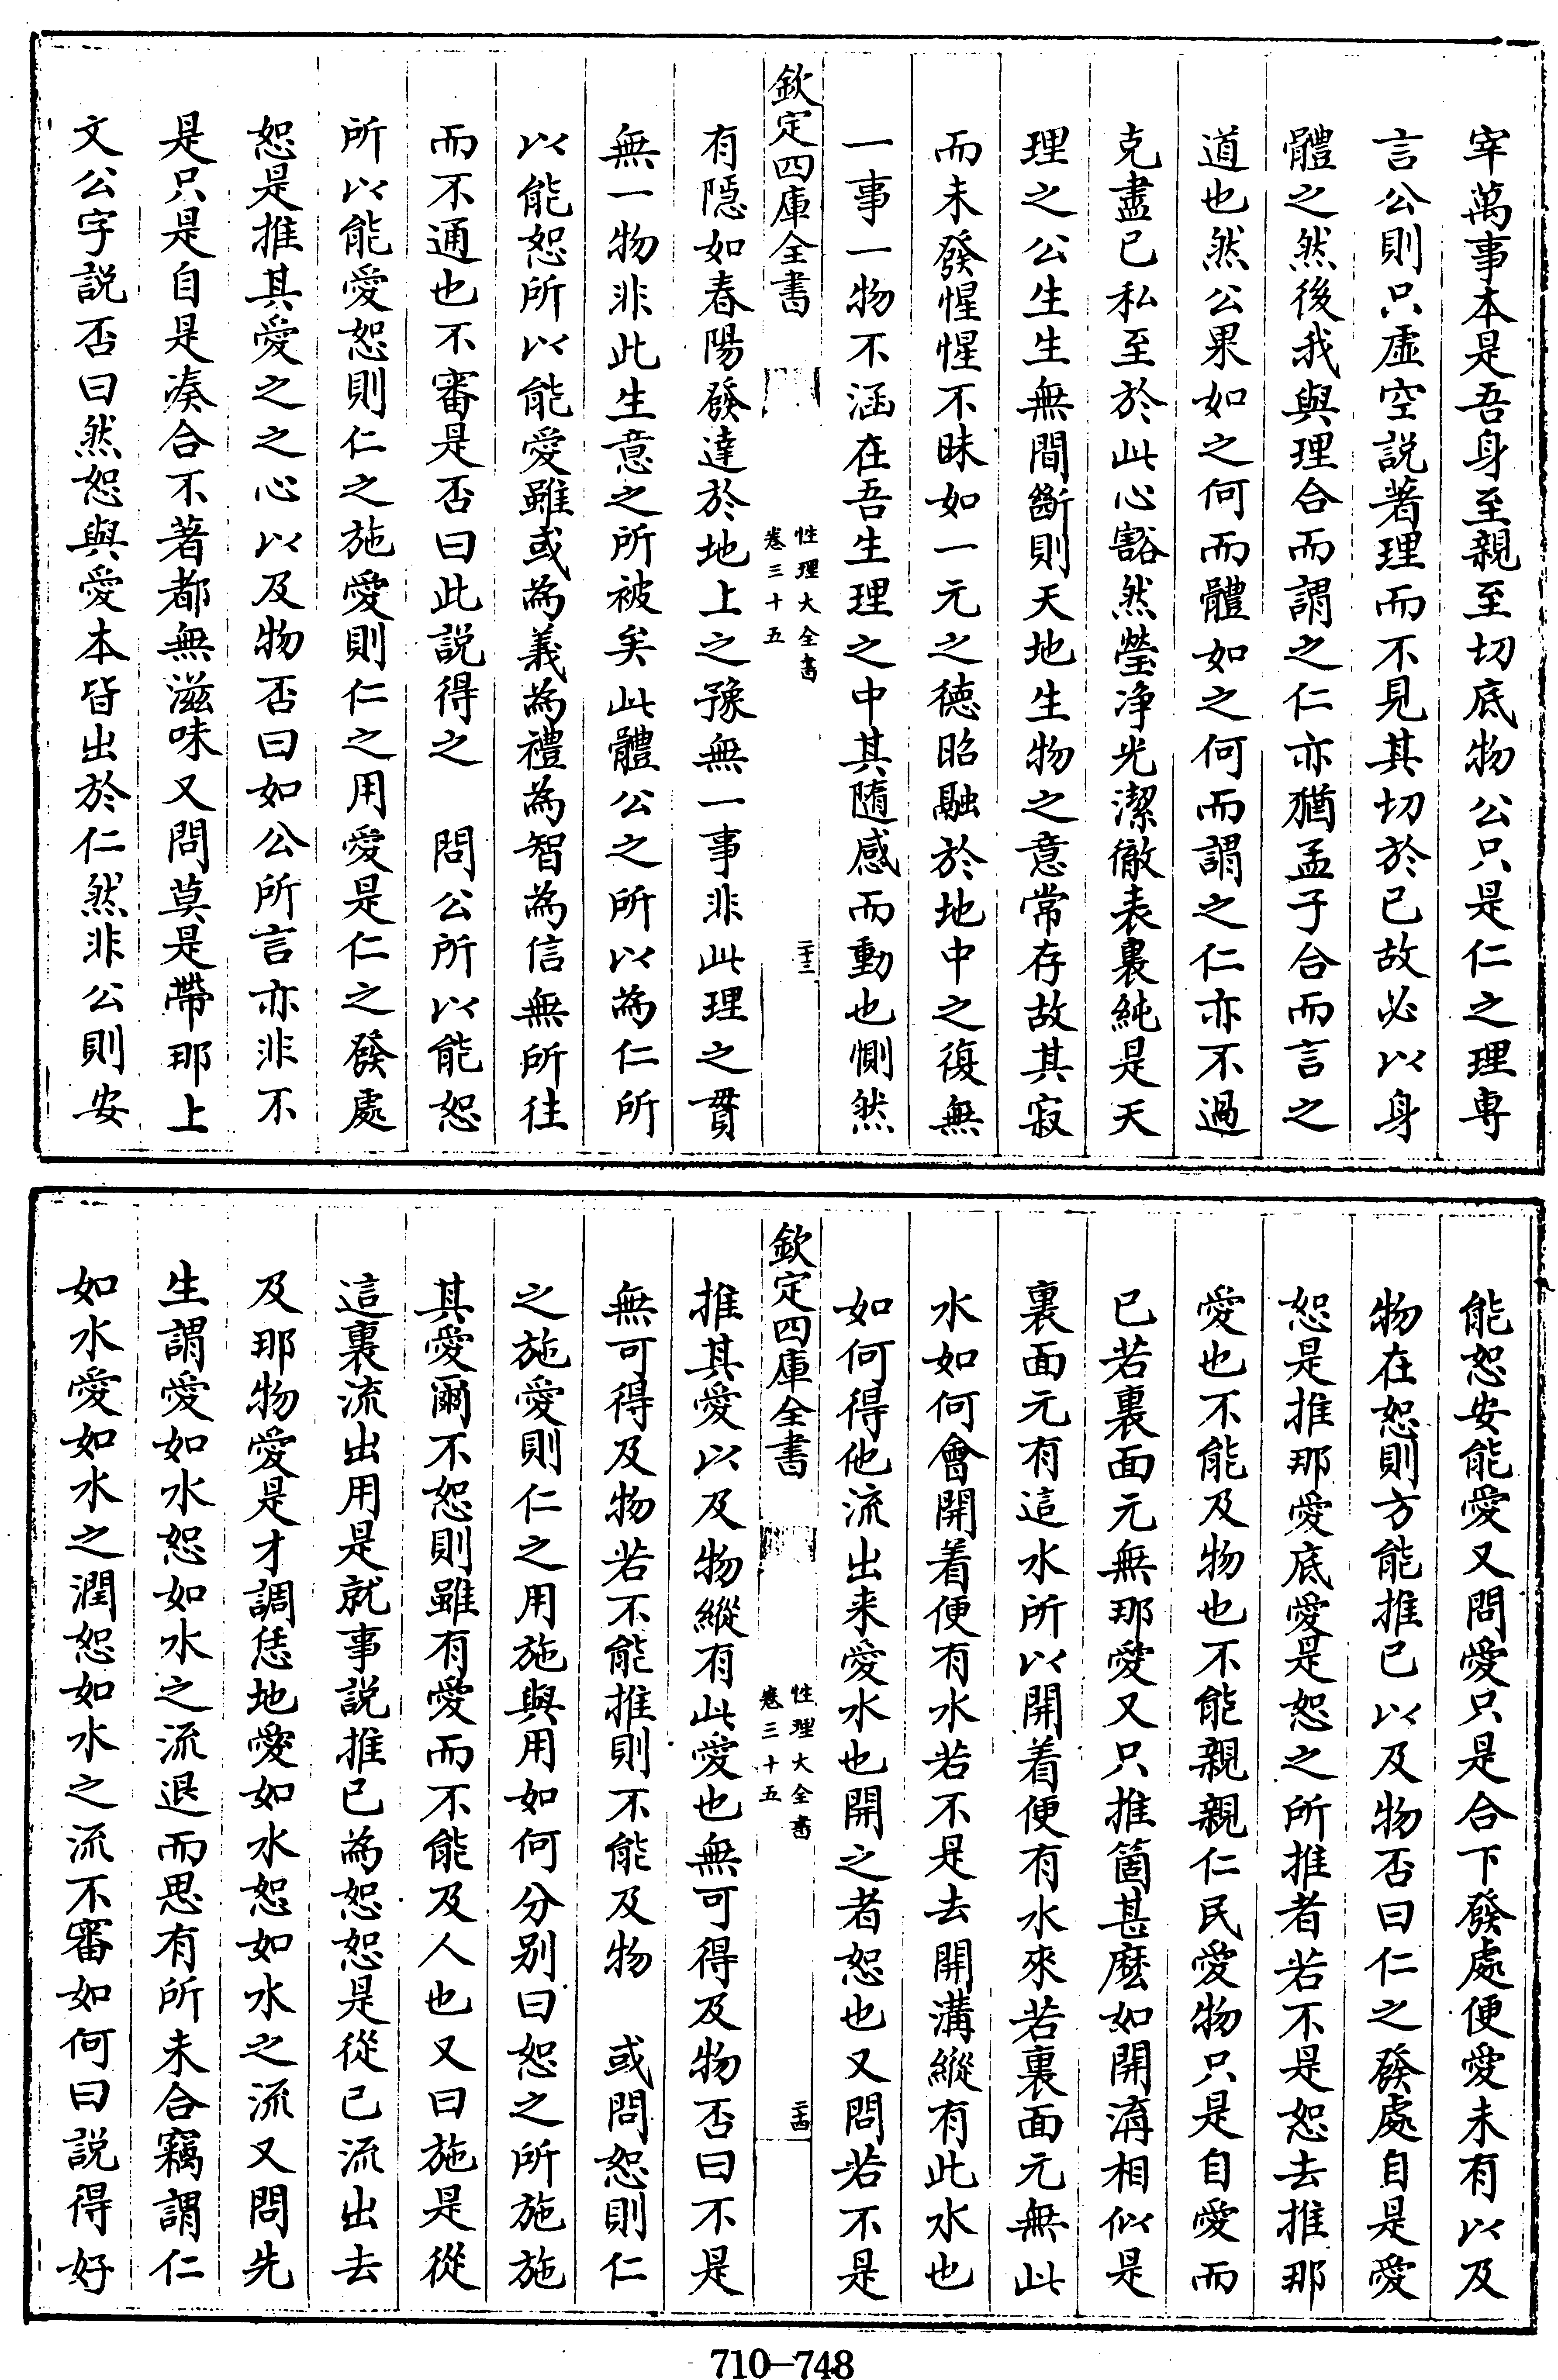 宰萬事本是吾身至親至切底物公只是仁之理專
言公則只虛空説著理而不見其切於已故必以身
體之然後我與理合而謂之仁亦猶孟子合而言之
道也然公果如之何而體如之何而謂之仁亦不過
克盡已私至於此心豁然瑩净光潔徹表裏純是天
理之公生生無間斷則天地生物之意常存故其寂
而未發惺惺不昧如一元之德昭融於地中之復無
一事一物不涵在吾生理之中其隨感而動也惻然
欽定四庫全書
性理大全書
卷三十五
二十三
有隱如春陽發達於地上之豫無一事非此理之貫
無一物非此生意之所被矣此體公之所以為仁所
以能恕所以能愛雖或為義為禮為智為信無所往
而不通也不審是否曰此説得之　問公所以能恕
所以能愛恕則仁之施愛則仁之用愛是仁之發處
恕是推其愛之之心以及物否曰如公所言亦非不
是只是自是湊合不著都無滋味又問莫是帶那上
文公字説否曰然恕與愛本皆出於仁然非公則安
能恕安能愛又問愛只是合下發處便愛未有以及
物在恕則方能推已以及物否曰仁之發處自是愛
恕是推那愛底愛是恕之所推者若不是恕去推那
愛也不能及物也不能親親仁民愛物只是自愛而
已若裏面元無那愛又只推箇甚麽如開溝相似是
裏面元有這水所以開着便有水來若裏面元無此
水如何會開着便有水若不是去開溝縱有此水也
如何得他流出来愛水也開之者恕也又問若不是
欽定四庫全書
性理大全書
卷三十五
二十四
推其愛以及物縱有此愛也無可得及物否曰不是
無可得及物若不能推則不能及物　或問恕則仁
之施愛則仁之用施與用如何分别曰恕之所施施
其愛爾不恕則雖有愛而不能及人也又曰施是從
這裏流出用是就事説推已為恕恕是從已流出去
及那物愛是才調恁地愛如水恕如水之流又問先
生謂愛如水恕如水之流退而思有所未合竊謂仁
如水愛如水之潤恕如水之流不審如何曰説得好
710—748